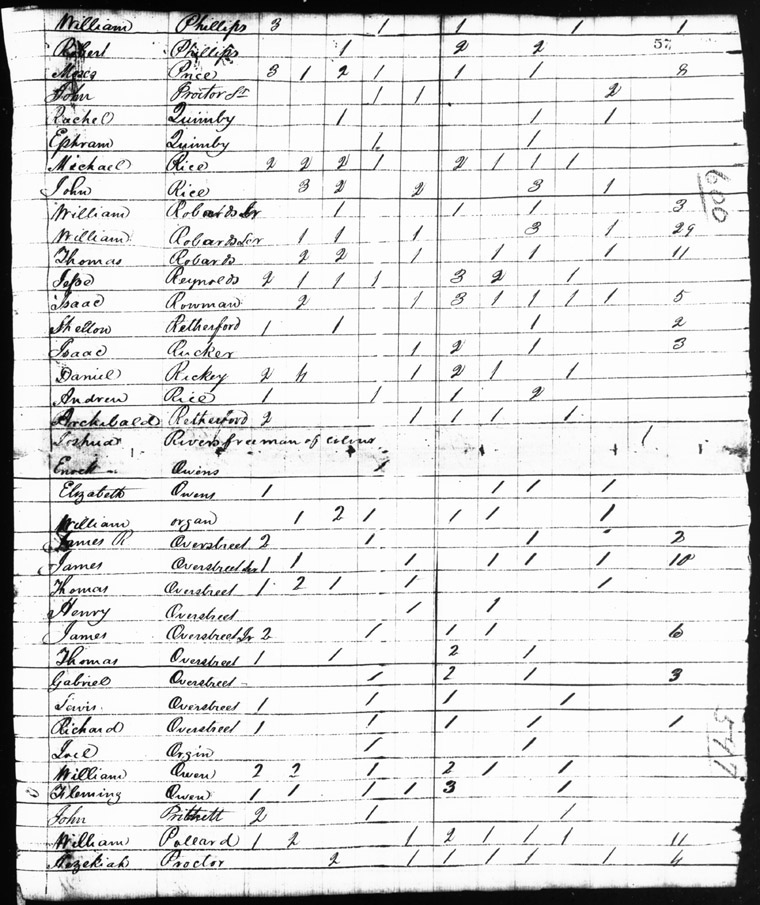 William Phillips 3 1 1 1 1
Robert Phillips 1 2 2
Moses Price 3 1 2 1 1 1 8
John Proctor Sr 1 1 2
Rachel Quimby 1 1 1
Ephram Quimby 1 1
Michael Rice 2 2 2 1 2 1 1 1
John Rice 3 2 2 3 1
William Robards 1 1 1 3
William Robards 1 1 1 3 1 29
Thomas Robards 2 2 1 1 1 1 11
Jesse Reynolds 2 1 1 1 3 2 1
Isaac Rowman 2 1 3 1 1 1 1 5
Shelton Retherford 1 1 1 2
Isaac Rucker 1 2 1 3
Daniel Rickey 2 4 1 2 1 1
Andrew Rice 1 1 1 2
Archibald Retherford 2 1 1 1 1
Joshua Rivers freeman of colour 1
Enock Owens 1
Elizabeth Owens 1 1 1 1
William organ 1 2 1 1 1 1
James R Overstreet 2 1 1 2
James Overstreet 1 1 1 1 1 1 10
Thomas Overstreet 1 2 1 1 1
Henry Overstreet 1 1
James Overstreet Jr 2 1 1 1 6
Thomas Overstreet 1 1 2 1
Gabriel Overstreet 1 2 1 3
Overstreet 1 1 1 1
Richard Overstreet 1 1 1 1 1
Joel Orgin 1 1
William Owen 2 2 1 2 1 1
Fleming Owen 1 1 1 1 3 1
John Pritchett 2 1 1
William Pollard 1 2 1 2 1 1 1 11
Hezekiah Proctor 2 1 1 1 1 1 4
600